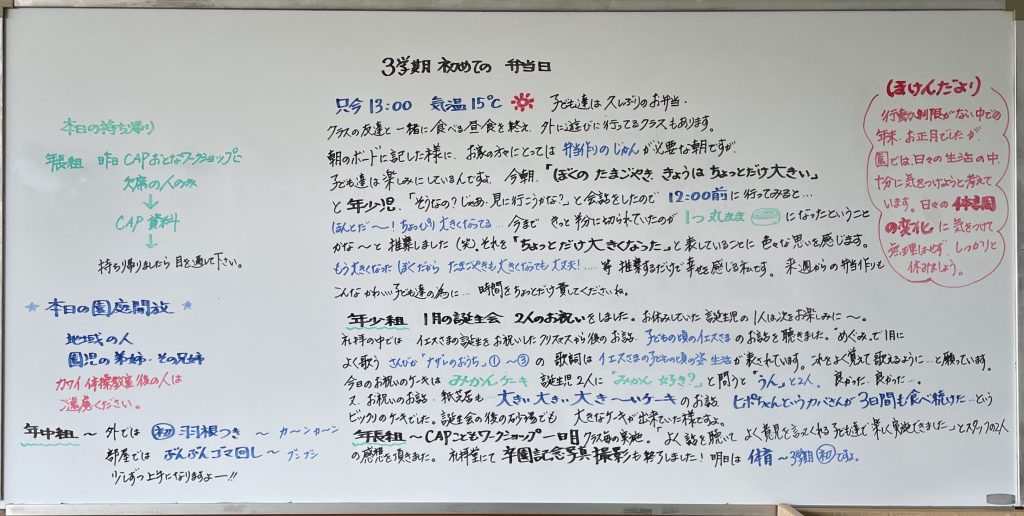 3学期 初めての 弁当日
只今 13:00 気温 15℃ 子ども達は 久しぶりのお弁当。
クラスの友達と一緒に食べる昼食を終え、外に遊びに行ってるクラスもあります。
朝のボードに記した様に、お家の方々にとっては 弁当作りの じかんが必要な朝ですが、
子ども達は楽しみにしているんですよ。今朝、「ぼくの たまごやき きょうは ちょっとだけ 大きい」
と 年少児、「そうなの?じゃあ、見に行こうかな?」と会話をしたので 12:00前に行ってみると…
ほんとだ〜!ちょっぴり大きくなってる 今まで きっと半分に切られていたのが 1つ丸まま になったということ
かな〜と 推察しました(笑)それを「ちょっとだけ大きくなった」と表していることに 色々な思いを感じます。
もう大きくなった ぼくだから たまごやきも大きくなっても大丈夫!…… 等 推察するだけで幸せを感じる私です。来週からの弁当作りも
こんな かわいい子ども達の為に… 時間をちょっとだけ費してくださいね。
年少組 1月の誕生会 2人のお祝いをしました。お休みしていた 誕生児の1人は次をお楽しみに〜。
礼拝の中では イエスさまの誕生をお祝いしたクリスマスから後のお話 子どもの頃のイエスさまのお話を聴きました。"めぐみ"って1月に
よく歌う さんびか「ナザレのおうち」①〜③の 歌詞は イエスさまの子どもの頃の姿 生活が 表されています。これをよく覚えて歌えるように…と願っています。
今日のお祝いのケーキは みかんケーキ 誕生児2人に "みかん 好き?"と問うと "うん"と2人、良かった、良かった…。
又、お祝いのお話 紙芝居も 大きい 大きい 大き〜いケーキのお話 ヒポちゃんというカバさんが 3日間も食べ続けた…という
ビックリのケーキでした。誕生会の後の砂場でも 大きなケーキが出来ていた様ですよ。
年長組〜CAPこどもワークショップ一日目 クラス毎の実施。「よく話を聴いて よく意見を言ってくれる子ども達で 楽しく実施できました」とスタッフの2人
の感想を頂きました。礼拝堂にて 卒園記念写真撮影も終了しました!明日は 体育〜3学期 初 ですよ。
本日の持ち帰り
年長組 昨日 CAPおとなワークショップに
欠席の人のみ
↓
CAP 資料
↓
持ち帰りましたら目を通して下さい。
★本日の園庭開放★
地域の人
園児の弟姉・その兄姉
カワイ体操教室後の人は
ご遠慮ください。
年中組〜 外では 初 羽根つき 〜 カ〜ンカ〜ン
部屋では ぶんぶんゴマ回し〜 ブンブン
少しずつ上手になりますよ〜!!
ほけんだより
行動の制限がない中での
年末、お正月でしたが
園では、日々の生活の中、
十分に気をつけようと考えて
います。日々の 体調
の変化 に気をつけて
無理はせず、しっかりと
休みましょう。